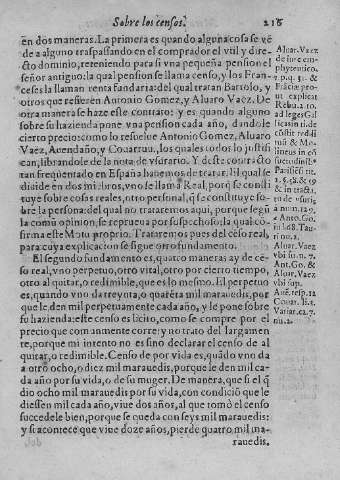 Sobre los censos. 216
en dos maneras. La primera es quando alguna cosa se vẽ
de a alguno traspassando en el comprador el vtil y dire-
cto dominio, reteniendo para si vna pequeña pension el
señor antiguo: la qual pension se llama censo, y los Fran-
ceses la llaman renta fundaria: del qual tratan Bartolo, y
otros que refieren Antonio Gomez, y Aluaro Vaez. De
otra manera se haze este contrato: y es quando alguno
sobre su hazienda pone vna pension cada año, dandole
cierto precio: como lo resuelue Antonio Gomez, Aluaro
Vaez, Auendaño, y Couarruu. los quales todos lo justifi-
can, librandole de la nota de vsurario. Y deste contracto
tan freqüentado en España hauemos de tratar: il qual se
diuide en dos miẽbros, vno se llama Real, porq̃ se consti
tuye sobre cosas reales, otro personal, q̃ se constituye so-
bre la persona: del qual no trataremos aqui, porque segũ
la comũ opinion, se reprueua por suspechoso: la qual cõ-
firma este Motu proprio. Trataremos pues del cẽso real,
para cuya explicacion se sigue otro fundamento.
El segundo fundamento es, quatro maneras ay de cẽ-
so real, vno perpetuo, otro vital, otro por cierto tiempo,
otro al quitar, o redimible, que es lo mesmo. El perpetuo
es, quando vno da treynta, o quarẽta mil marauedis, por
que le den mil perpetuamente cada año, y le pone sobre
su hazienda: este censo es licito, como se compre por el
precio que commumente corre: y no trato del largamen-
te, porque mi intento no es sino declarar el censo de al
quitar, o redimible. Censo de por vida es, quãdo vno da
a otro ocho, o diez mil marauedis, porque le den mil ca-
da año por su vida, o de su muger. De manera, que si el q̃
dio ocho mil marauedis por su vida, con condiciõ que le
diessen mil cada año, viue dos años, al que tomò el censo
succedele bien, porque se queda con seys mil marauedis:
y si acontece que viue doze años, pierde quatro mil ma-
rauedis.
Aluar. Vaez
de iure em-
phyteutico.
Aluar. Vaez
vbi su. n. 7.
Ant. Go. &
Aluar. Vaez
vbi sup.
Auẽ. resp. 12
Couar. li. 3.
Variar. ca. 7.
nu. 2.